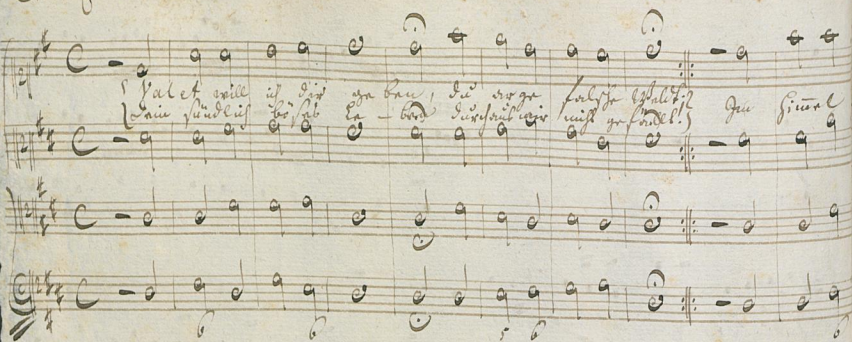 Valet will ich dir geben, du arge falsche Welt!
dein sündlich böses Leben durchaus mir nicht gefällt. Im Himmel
6 6 5 6 6